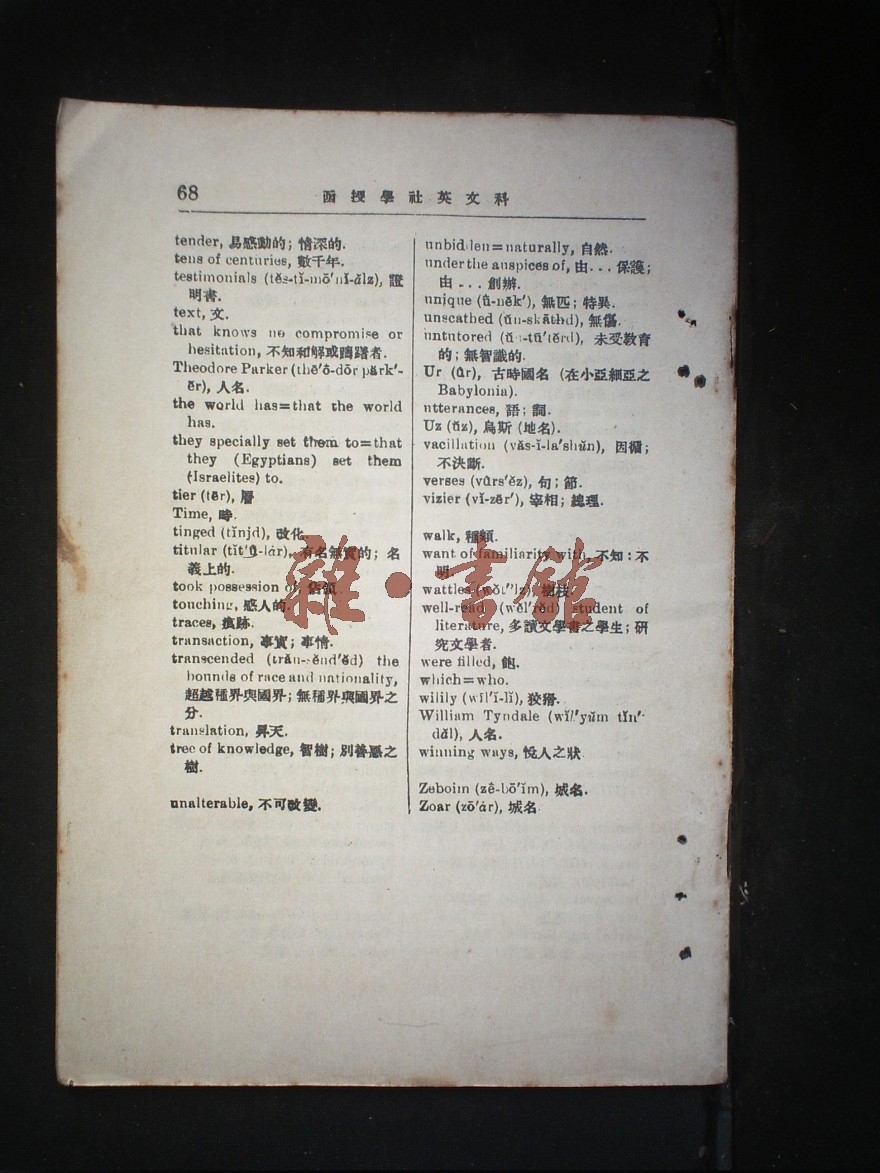 68
函授學社英文科
tender, 易感動的; 情深的.
tens of centuries, 數千年.
testimonials (tĕs-tĭ-mō′nĭ-ălz), 證
明書.
text, 文.
that knows no compromise or
hesitation, 不知和解或躊躇者.
Theodore Parker (thē′ô-dōr pärk′-
ẽr), 人名.
the world has=that the world
has.
they specially set them to=that
they (Egyptians) set them
(Israelites) to.
tier (tēr), 層
Time, 時.
tinged (tĭnjd), 改化
titular (tĭt′û-lár), 有名無實的; 名
義上的.
took possession of, 佔領
touching, 感人的.
traces, 痕跡.
transaction, 事實; 事情.
transcended (trăn-sĕnd′ĕd) the
bounds of race and nationality,
超越種界與國界; 無種界與國界之
分.
translation, 昇天.
tree of knowledge, 智樹; 別善惡之
樹.
unalterable, 不可改變.
unbidden=naturally, 自然.
under the auspices of, 由...保護;
由...創辦.
unique (û-nēk′), 無匹; 特異.
unscathed (ŭn-skāthd), 無傷.
untutored (ŭn-tū′tẽrd), 未受教育
的; 無智識的.
Ur (ûr), 古時國名 (在小亞細亞之
Babylonia).
utterances, 語; 詞.
Uz (ŭz), 烏斯 (地名).
vacillation (văs-ĭ-la′shŭn), 因循;
不決斷.
verses (vûrs′ĕz), 句; 節.
vizier (vĭ-zēr′), 宰相; 總理.
walk, 種類.
want of familiarity with, 不知: 不
明.
wattles 樹枝.
well-read (wĕl′rĕd) student of
literature, 多讀文學書之學生; 研
究文學者.
were filled, 飽.
which=who.
wilily (wĭl′ĭ-lĭ), 狡猾.
William Tyndale (wĭl′yŭm tĭn′-
dăl), 人名.
winning ways, 悅人之狀
Zeboim (zê-bō′ĭm), 城名.
Zoar (zō′ár), 城名
雜·書館